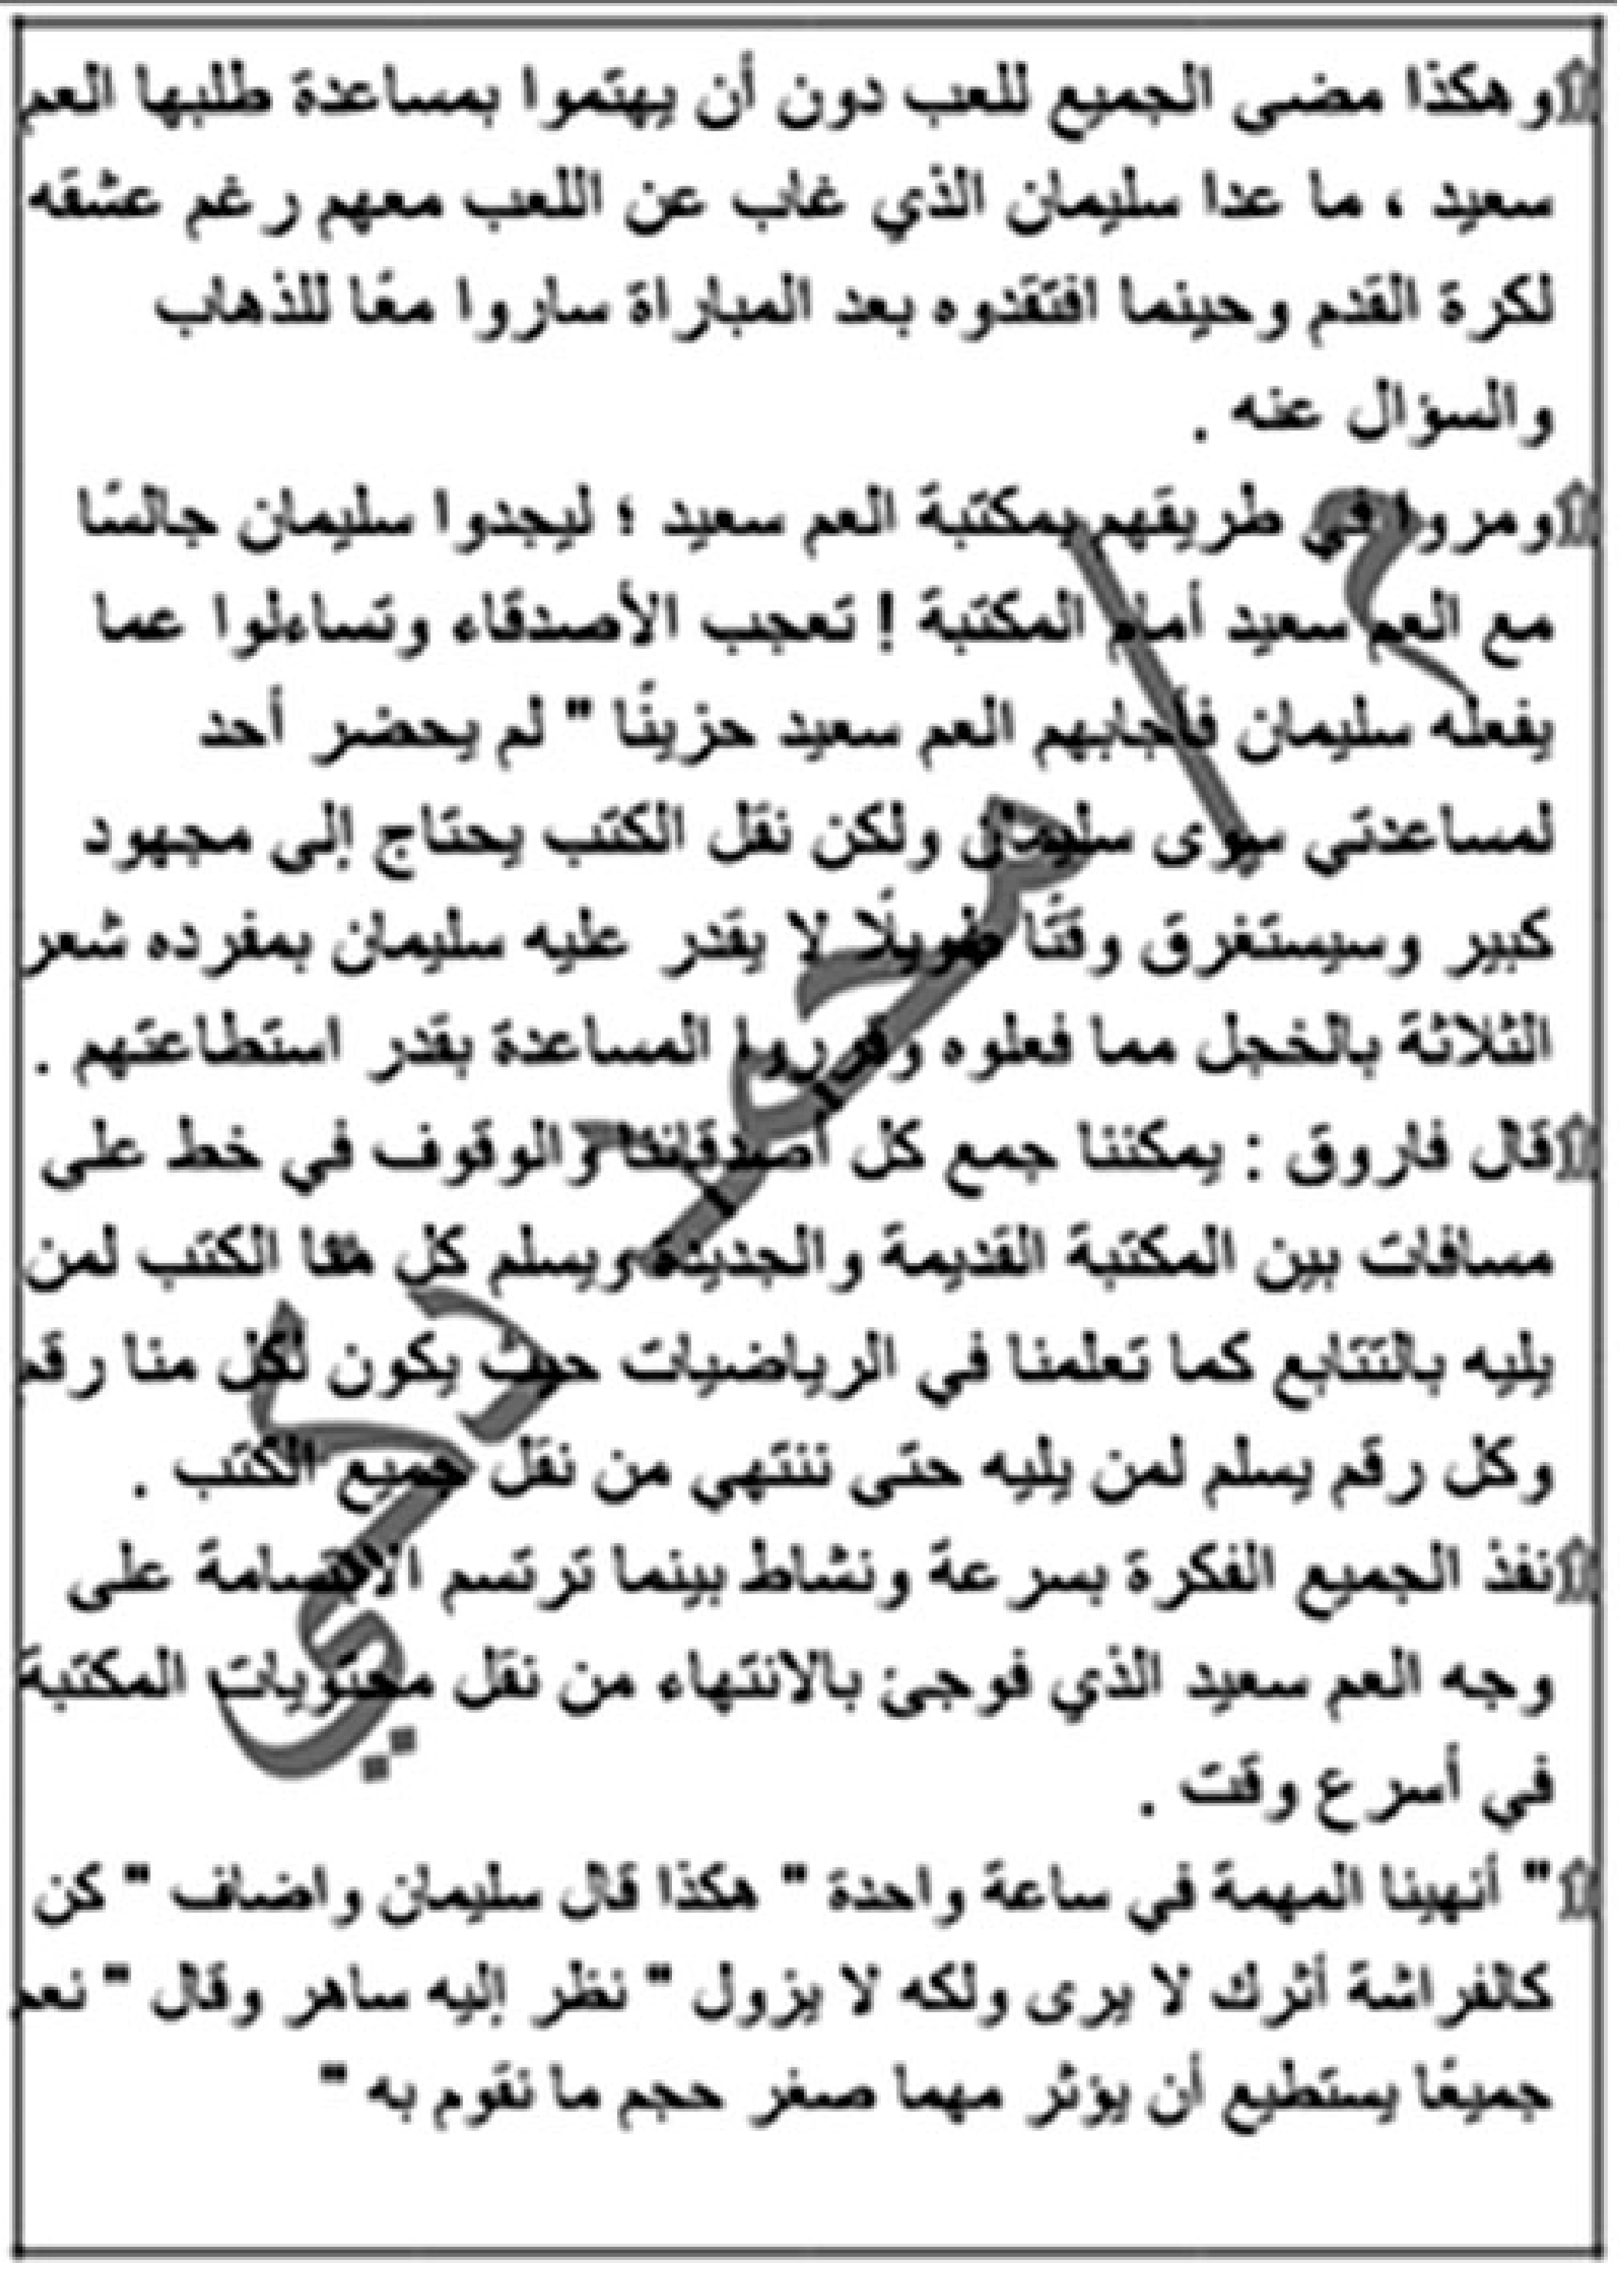 وهكذا مضى الجميع للعب دون أن يهتموا بمساعدة طلبها العم
سعيد ، ما عدا سليمان الذي غاب عن اللعب معهم رغم عشقه
لكرة القدم وحينما افتقدوه بعد المباراة ساروا معًا للذهاب
والسؤال عنه .
ومروا في طريقهم بمكتبة العم سعيد ؛ ليجدوا سليمان جالسًا
مع العم سعيد أمام المكتبة ! تعجب الأصدقاء وتساءلوا عما
يفعله سليمان فأجابهم العم سعيد حزينًا " لم يحضر أحد
لمساعدتي سوى سليمان ولكن نقل الكتب يحتاج إلى مجهود
كبير وسيستغرق وقتًا طويلًا لا يقدر عليه سليمان بمفرده شعر
الثلاثة بالخجل مما فعلوه وقرروا المساعدة بقدر استطاعتهم .
قال فاروق : يمكننا جمع كل أصدقائنا والوقوف في خط على
مسافات بين المكتبة القديمة والجديدة ويسلم كل منا الكتب لمن
يليه بالتتابع كما تعلمنا في الرياضيات حيث يكون لكل منا رقم
وكل رقم يسلم لمن يليه حتى ننتهي من نقل جميع الكتب .
نفذ الجميع الفكرة بسرعة ونشاط بينما ترتسم الابتسامة على
وجه العم سعيد الذي فوجئ بالانتهاء من نقل محتويات المكتبة
في أسرع وقت .
" أنهينا المهمة في ساعة واحدة " هكذا قال سليمان واضاف " كن
كالفراشة أثرك لا يرى ولكه لا يزول " نظر إليه ساهر وقال " نعم
جميعًا يستطيع أن يؤثر مهما صغر حجم ما نقوم به "